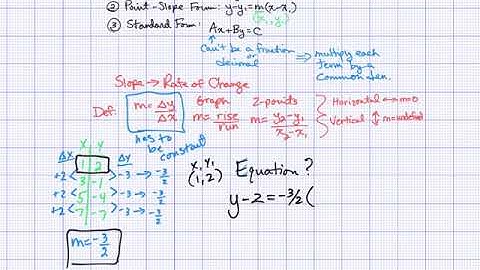 ② Point-Slope Form: y-y₁=m(x-x₁)
(x₁, y₁)
③ Standard Form: Ax+By=C
Can't be a fraction or decimal ⇒ multiply each term by a common den.
Slope → Rate of Change
Def: m=Δy/Δx
has to be constant
Graph
m=rise/run
2-points
m=y₂-y₁/x₂-x₁
Horizontal ↔ m=0
Vertical ↕ m=undefined
x y
Δx 1 2 Δy
+2 < 3 -1 > -3 → -3/2
+2 < 5 -4 > -3 → -3/2
+2 < 7 -7 > -3 → -3/2
m=-3/2
x₁ y₁
(1,2)
Equation?
y-2=-3/2(